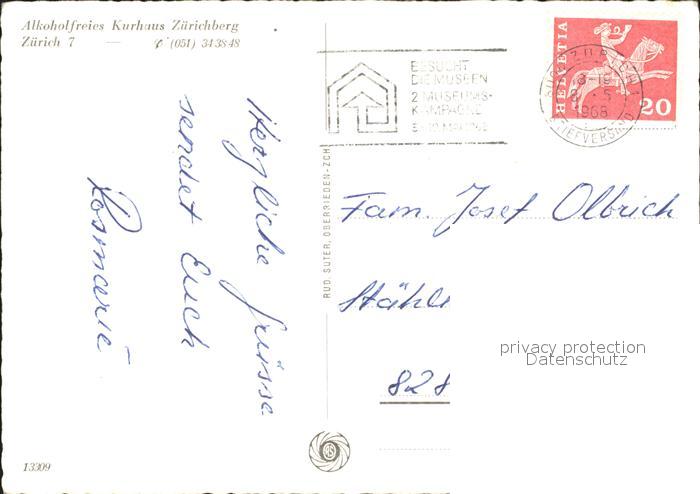 Alkoholfreies Kurhaus Zürichberg
Zürich 7 — ✆ (051) 34 38 48
Herzliche Grüsse
sendet Euch
Rosmarie
13309
RUD. SUTER, OBERRIEDEN-ZCH
BESUCHT
DIE MUSEEN
2. MUSEUMS-
KAMPAGNE
1968
BRIEFVERSAND
HELVETIA
20
Fam. Josef Olbrich
828
privacy protection
Datenschutz